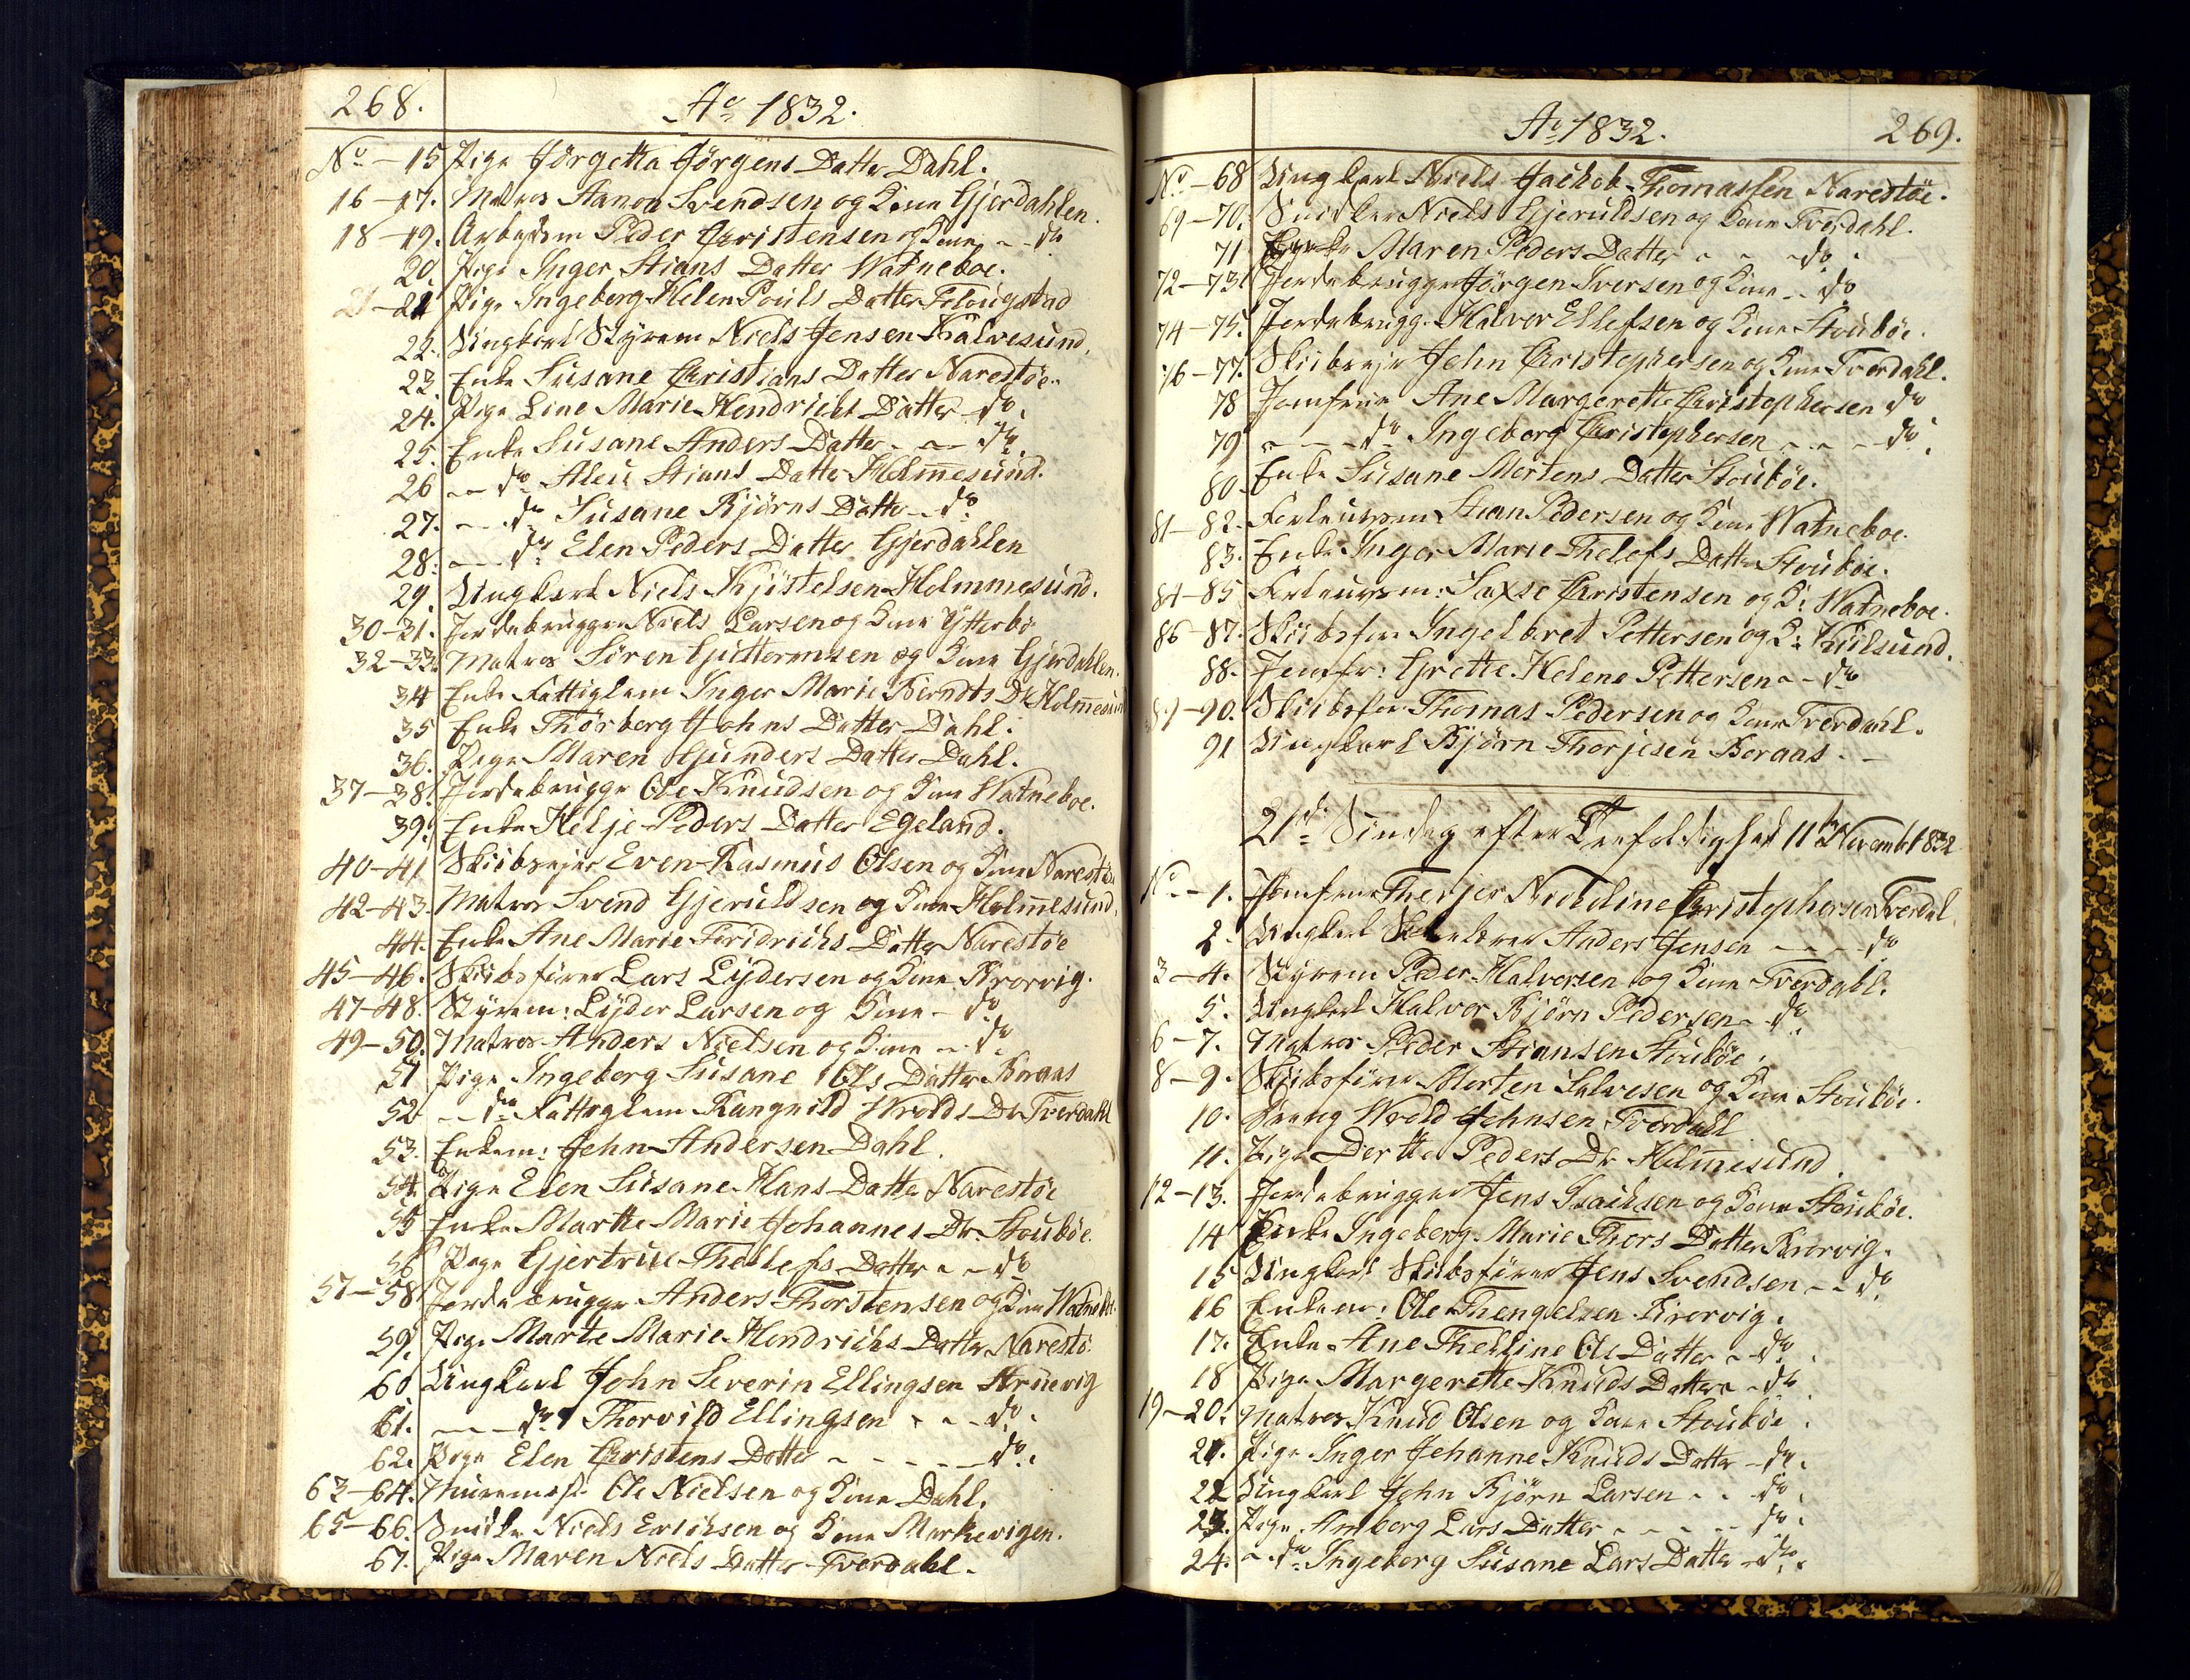 268.
Ao 1832.
No - 15 Pige Jörgetta Jörgens Datter Dahl.
16-17. Matros Aanon Svendsen og Kone Gjerdahlen.
18-19. Arbejdsm Peder Christensen og Kone - - do
20. Pige Inger Stians Datter Watneboe.
21-21 Pige Ingeborg Helen Pouls Datter Flougstad
22. Ungkarl Styrem Niels Jensen Kalvesund.
23. Enke Susane Christians Datter Narestöe.
24. Pige Line Marie Hendrichs Datter do.
25. Enke Susane Anders Datter - - do.
26 - - do Aleu Stians Datter Holmesund.
27. - - do Susane Bjørns Datter - do
28. - - do Elen Peders Datter Gjerdahlen
29. Ungkarl Niels Kjöstelsen Holmmesund.
30-31. Jordebrugger Niels Larsen og Kone Ytterbö
32-33. Matros Sören Guttormsen og Kone Gjerdahlen.
34 Enke Fattiglem Inger Marie Berndts Dr Holmesund
35 Enke Thörberg Johns Datter Dahl.
36. Pige Maren Gunders Datter Dahl.
37-38. Jordebrugge Ole Knudsen og Kone Watneboe.
39. Enke Helje Peders Datter Egeland.
40-41 Skibsejer Even Rasmus Olsen og Kone Narestö
42-43. Matros Svend Gjeruldsen og Kone Holmesund.
44. Enke Ane Marie Feridrichs Datter Narestöe
45-46. Skibsfører Lars Lydersen og Kone Krorvig.
47-48. Styrem: Lyder Larsen og Kone - do
49-50. Matros Anders Nielsen og Kone - do
51 Pige Ingeborg Susane Ols Datter Boraas
52 - - do Fattiglem Rangnild Wrolds Dr Tverdahl
53. Enkem: John Andersen Dahl.
54. Pige Elen Susane Hans Datter Narestöe
55 Enke Marthe Marie Johannes Dr. Stouböe.
56 Pige Gjertrue Thellefs Datter - - do
57-58 Jordebrugge Anders Thorstensen og Kone Watneboe.
59. Pige Marte Marie Hendrichs Datter Narestö
60. Ungkarl John Severin Ellingsen Struevig
61. - - - do Thorvild Ellingsen - - - do.
62. Pige Elen Christens Datter - - - - - do.
63-64. Muremest Ole Nielsen og Kone Dahl.
65-66. Snidker Niels Erichsen og Kone Markevigen.
67. Pige Maren Niels Datter Tverdahl.
Ao 1832.
269.
No - 68 Ungkarl Niels Jachob Thomassen Narestöe.
69-70. Snidker Niels Gjeruldsen og Kone Tverdahl.
71 Enke Maren Peders Datter - - - do.
72-73. Jordebrugger Jörgen Iversen og Kone - - do
74-75. Jordebrugg. Halvor Ellefsen og Kone Stouböe.
76-77. Skibseje John Christophersen og Kone Tverdahl.
78 Jomfrue Ane Margerethe Christophersen do
79 - - - do Ingeborg Christophersen - - - do.
80. Enke Susane Mortens Datter Stouböe.
81-82. Forlausem Stian Pedersen og Kone Watneboe.
83. Enke Inger Marie Thelefs Datter Stouböe.
84-85 Forlausm: Saxse Christensen og K: Watneboe.
86-87. Skibsfører Ingelbret Pettersen og K: Kiilsund.
88. Jomfr: Grethe Helene Pettersen - - do
89-90. Skibsfør Thomas Pedersen og Kone Tverdahl.
91 Ungkarl Bjørn Thorjesen Boraas. -
21de Søndag efter Trefoldighed 11te Novembr 1832
No - 1. Jomfrue Therjer Nicoline Christophersen Tverdal.
2. Ungkarl Anders Jensen - - - do
3-4. Styrem Peder Halvorsen og Kone Tverdahl.
5. Ungkarl Halvor Bjørn Pedersen - do
6-7. Matros Peder Stiansen Stouböe.
8-9. Skibsfører Morten Salvesen og Kone Stouböe.
10. Dreng Wrold Johnsen Tverdahl
11. Pige Dorthe Peders Dr Holmesund.
12-13. Jordebrugger Jens Isachsen og Kone Stouböe.
14 Enke Ingeborg Marie Thors Datter Krorvig.
15 Ungkarl Skibsfører Jens Svendsen - - do
16 Enkem: Ole Thengelsen Krorvig.
17. Enke Ane Thelline Ols Datter - do.
18 Pige Margerette Knuds Datter - do.
19-20. Matros Knud Olsen og Kone Stouböe.
21. Pige Inger Johanne Knuds Datter - do.
22 Ungkarl John Bjørn Larsen - - do.
23. Pige Amberg Lars Datter - - - - do.
24. - do Ingeborg Susane Lars Datter - do.